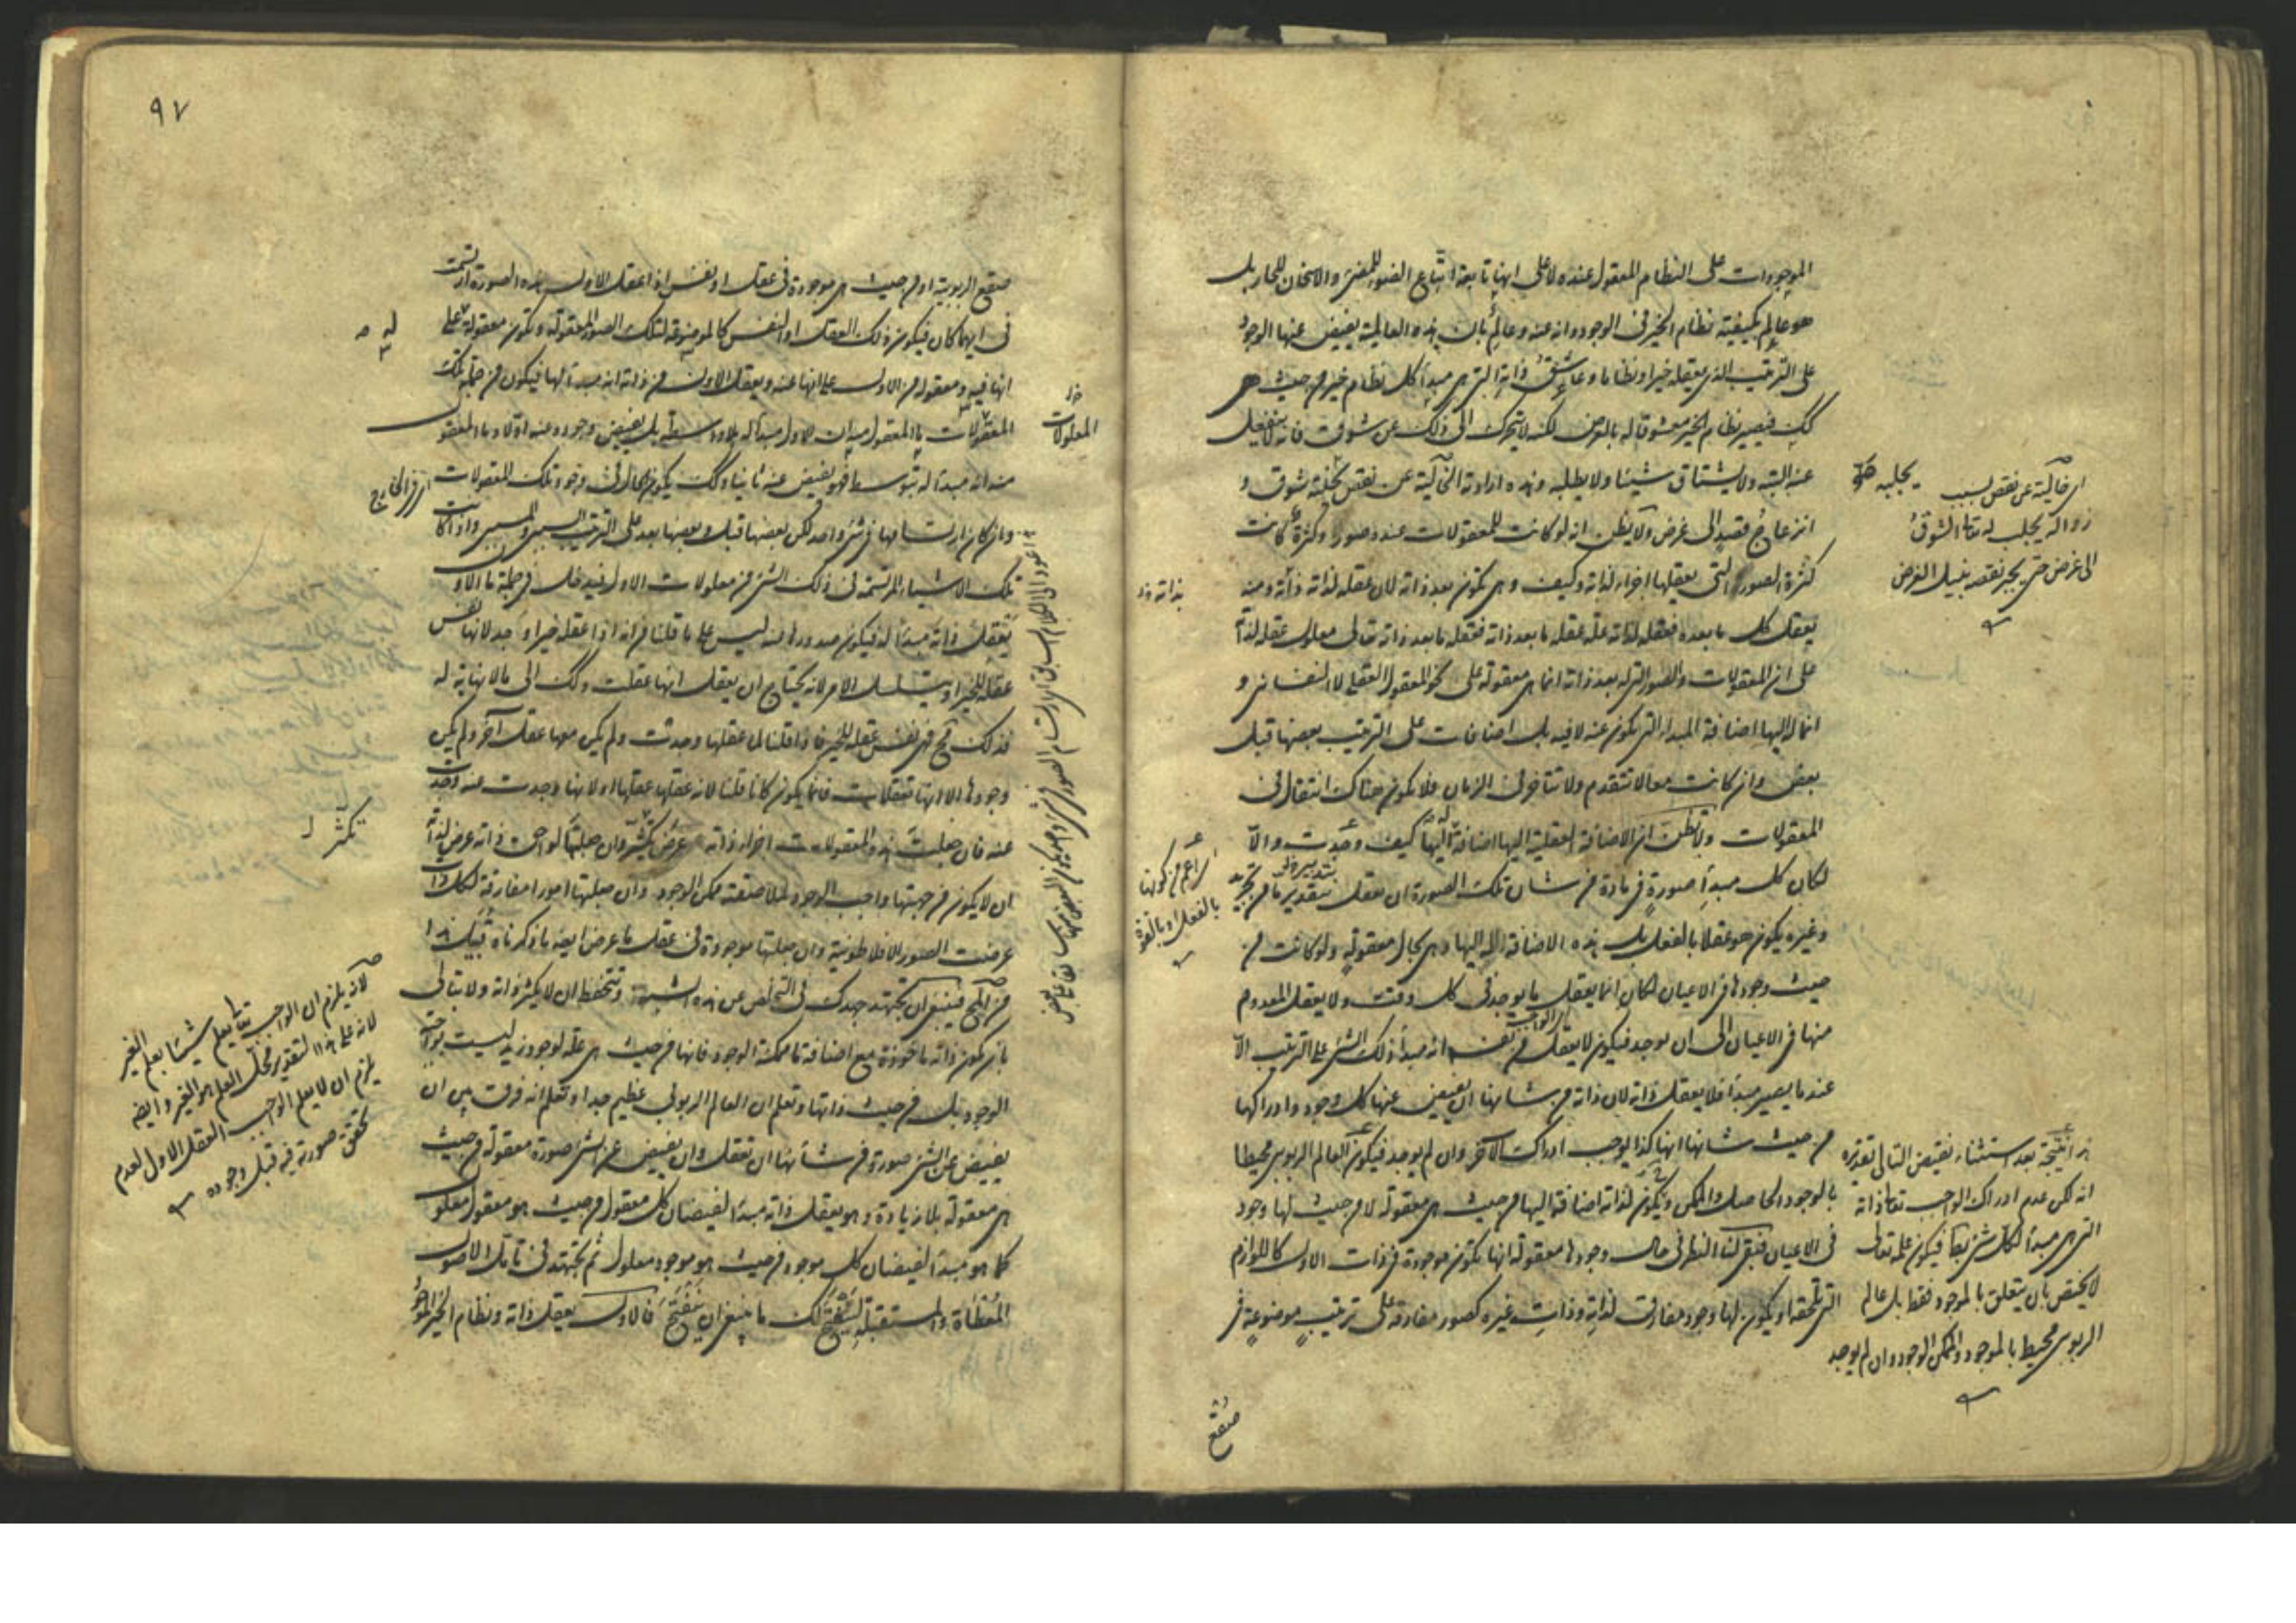 الموجودات على النظام المعقول عنده لا على انها تابعة اتباع الضوء للمضئ والاسخان للحار بل
هو عالم بكيفية نظام الخير فى الوجود وانه عنه وعالم بان هذه العالمية يفيض عنها الوجود
على الترتيب الذى يعقله خيرا ونظاما وعاشق ذاته التى هى مبدأ كل نظام خير من حيث هى
كك فيصير نظام الخير معشوقا له بالعرض لكنه لا يتحرك الى ذلك عن شوق فانه لا ينفعل
عنه البتة ولا يشتاق شيئا ولا يطلبه وهذه ارادته الخالية عن نقص يجلبه شوق و
انزعاج قصد الى غرض ولا يظن انه لو كانت للمعقولات عنده صور وكثرة كانت
كثرة الصور التى يعقلها اجزاء لذاته وكيف وهى تكون بعد ذاته لان عقله لذاته ذاته ومنه
يعقل كل ما بعده فعقله لذاته علة عقله ما بعد ذاته فعقله ما بعد ذاته تعالى معلول عقله لذاته
على ان المعقولات والصور التى له بعد ذاته انما هى معقولة على نحو المعقول العقلى لا النفسانى و
انما له اليها اضافة المبدأ الذى يكون عنه لا فيه بل اضافات على الترتيب بعضها قبل
بعض وان كانت معا لا تتقدم ولا تتأخر فى الزمان فلا يكون هناك انتقال فى
المعقولات ولا تظن ان الاضافة العقلية اليها اضافة اليها كيف وجدت والا
لكان كل مبدأ صورة فى مادة من شان تلك الصورة ان تعقل بتقدير ما من تجريد
وغيره يكون هو عقلا بالفعل بل هذه الاضافة له اليها وهى بحال معقولة ولو كانت من
حيث وجودها فى الاعيان لكان انما يعقل ما يوجد فى كل وقت ولا يعقل المعدوم
منها فى الاعيان الى ان يوجد فيكون لا يعقل من نفسه انه مبدأ ذلك الشئ على الترتيب الا
عند ما يصير مبدأ فلا يعقل ذاته لان ذاته من شانها ان يفيض عنها كل وجود وادراكها
من حيث شانها انها كذا يوجب ادراك الآخر وان لم يوجد فيكون العالم الربوبى محيطا
بالوجود الحاصل والممكن ويكون لذاته اضافة اليها من حيث هى معقولة لا من حيث لها وجود
فى الاعيان فبقى لنا النظر فى حال وجودها معقولة انها تكون موجودة فى ذات الاول كاللوازم
التى تلحقه او يكون لها وجود مفارق لذاته وذات غيره كصور مفارقة على ترتيب موضوعة فى
صقع
اى خالية عن نقص بسبب
زواله يجلب له تعالى الشوق
الى غرض حتى يجبر نقصه بنيل الغرض
يجلبه
بذاته
اى اعم من كونها
بالفعل او بالقوة
هذا نتيجة بعد استثناء نقيض التالى تقديره
انه لكن عدم ادراك الواجب تعالى ذاته
التى هى مبدأ لكل شئ بط فيكون علمه تعالى
لا يختص بان يتعلق بالموجود فقط بل عالم
الربوبى محيط بالموجود والممكن الوجود وان لم يوجد
٩٧
صقع الربوبية او من حيث هى موجودة فى عقل او نفس اذا عقل الاول هذه الصورة ارتسمت
فى ايهما كان فيكون ذلك العقل او النفس كالموضوع لتلك الصور المعقولة وتكون معقولة على
انها فيه ومعقولة من الاول على انها عنه ويعقل الاول من ذاته انه مبدأ لها فيكون من جملة تلك
المعقولات ما المعقول منه ان الاول مبدأ له بلا واسطة بل يفيض وجوده عنه اولا وما المعقول
منه انه مبدأ له بتوسط فهو يفيض عنه ثانيا وكك يكون الحال فى وجود تلك المعقولات
وان كان ارتسامها فى شئ واحد لكن بعضها قبل وبعضها بعد على الترتيب السببى والمسببى واذا كانت
تلك الاشياء المرتسمة فى ذلك الشئ من معلولات الاول فيدخل فى جملة ما الاول
يعقل ذاته مبدأ له فيكون صدورها عنه ليس على ما قلنا من انه اذا عقله خيرا وجد لانها نفس
عقله للخير او يتسلسل الامر لانه يحتاج ان يعقل انها عقلت وكك الى ما لا نهاية له
فذلك مح فهى نفس عقله للخير فاذا قلنا لما عقلها وجدت ولم يكن معها عقل آخر ولم يكن
وجودها الا انها تعقلات فانما يكون كانا قلنا لانه عقلها عقلها او لانها وجدت عنه وجدت
عنه فان جعلت هذه المعقولات اجزاء ذاته عرض تكثر وان جعلتها لواحق ذاته عرض لذاته
ان لا يكون من جهتها واجب الوجود لملاصقته ممكن الوجود وان جعلتها امورا مفارقة لكل ذات
عرضت الصور الافلاطونية وان جعلتها موجودة فى عقل ما عرض ايضا ما ذكرناه قبيل هذا
من المح فينبغى ان تجتهد جهدك فى التخلص عن هذه الشبهة وتتحفظ ان لا يكثر ذاته ولا تبالى
بان يكون ذاته ماخوذة مع اضافة ما ممكنة الوجود فانها من حيث هى علة لوجود زيد ليست بواجبة
الوجود بل من حيث ذاتها وتعلم ان العالم الربوبى عظيم جدا وتعلم انه فرق بين ان
يفيض عن الشئ صورة من شأنها ان تعقل وان يفيض عن الشئ صورة معقولة من حيث
هى معقولة بلا زيادة وهو يعقل ذاته مبدأ لفيضان كل معقول من حيث هو معقول معلول
كما هو مبدأ لفيضان كل موجود من حيث هو موجود معلول ثم تجتهد فى تأمل الاصول
المعطاة والمستقبلة ليتضح لك ما ينبغى ان يتضح فالاول يعقل ذاته ونظام الخير الموجود
المعلولات
اى فى الخارج
تكثر
لانه يلزم ان الواجب تعالى يعلم شيئا بعلم الغير
لانه على هذا التقدير محل العلم هو الغير وايضا
يلزم ان لا يعلم الواجب العقل الاول لعدم
تحقق صورته فيه قبل وجوده